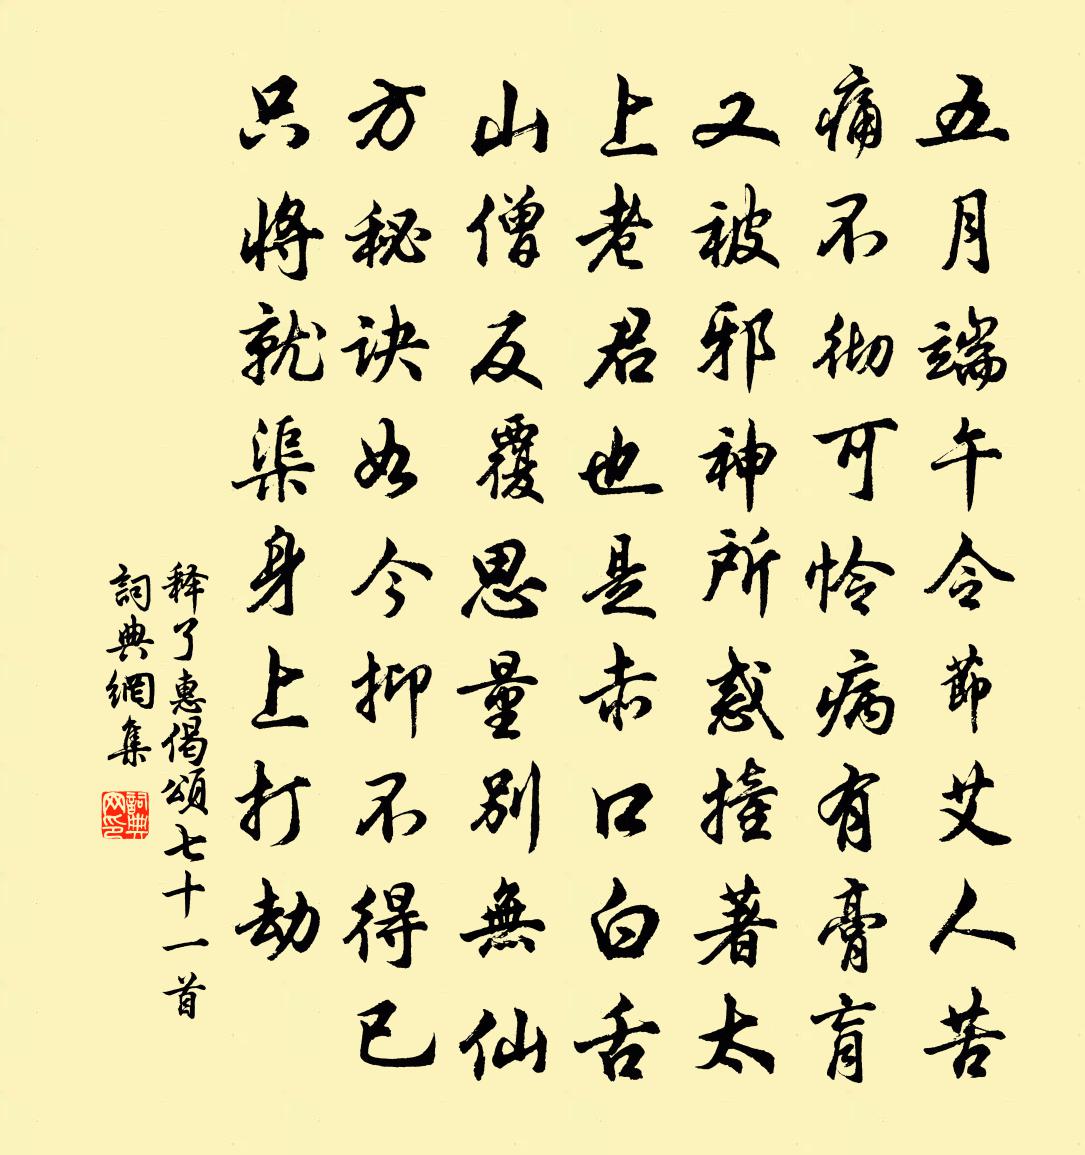 五月端午令節艾人苦
痛不徹可憐病有膏肓
又被邪神所惑撞著太
上老君也是赤口白舌
山僧反覆思量別無仙
方秘訣如今抑不得已
只將就渠身上打劫
释了惠偈頌七十一首
詞典網集
詞典网印